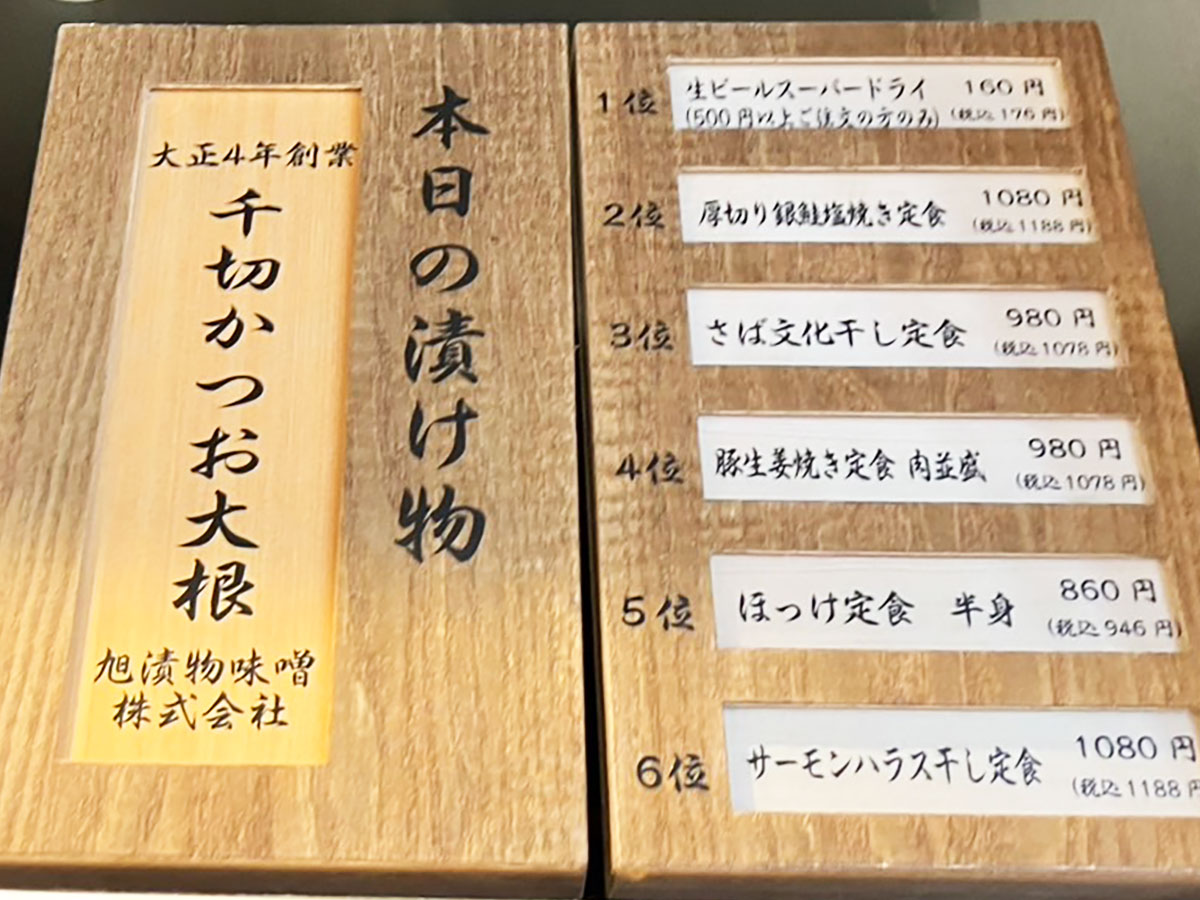 本日の漬け物
大正4年創業
千切かつお大根
旭漬物味噌
株式会社
1位 生ビールスーパードライ 160円
(500円以上ご注文の方のみ) (税込176円)
2位 厚切り銀鮭塩焼き定食 1080円
(税込1188円)
3位 さば文化干し定食 980円
(税込1078円)
4位 豚生姜焼き定食 肉並盛 980円
(税込1078円)
5位 ほっけ定食 半身 860円
(税込946円)
6位 サーモンハラス干し定食 1080円
(税込1188円